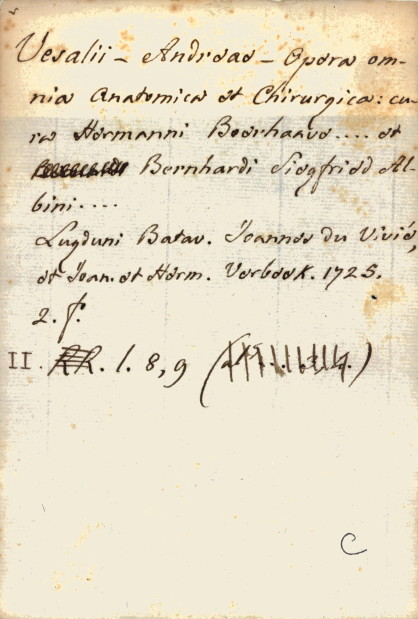 Vesalii - Andreae - Opera om-
nia Anatomica et Chirurgica: cu-
ra Hermanni Boerhaave.... et
Bernhardi Siegfried Al-
bini....
Lugduni Batav. Joannes du Vivié,
et Joan. et Herm. Verbeek. 1725.
2. f.
II. l. 8, 9
C